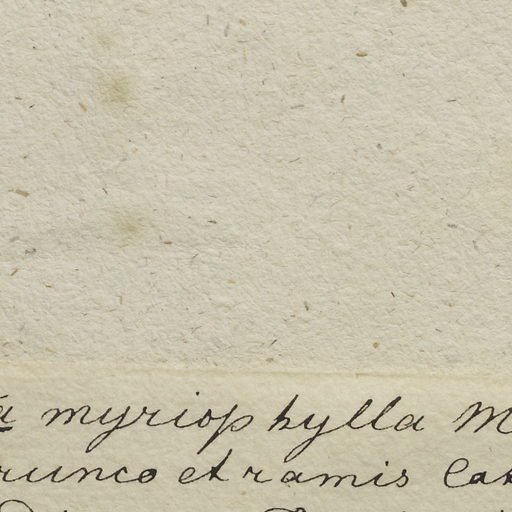 a myriophylla M
runco et ramis Cat